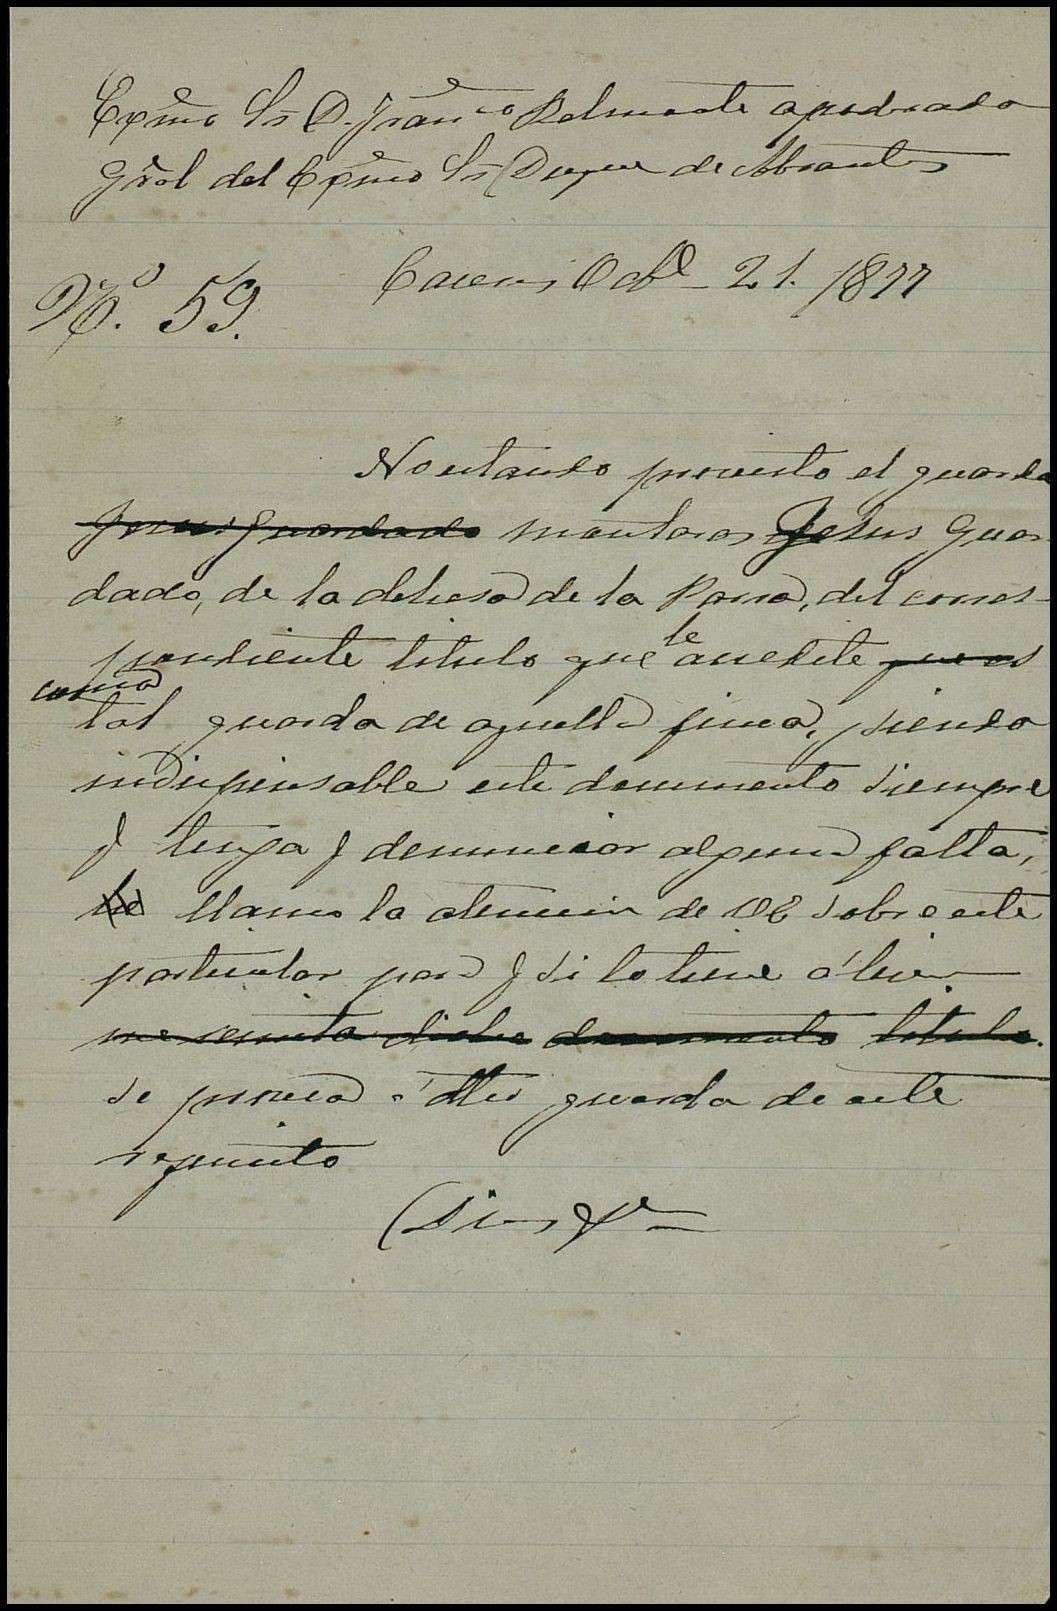 Exmo Sr D. Franco Belmonte apoderado
Gral del Exmo Sr Duque de Abrantes
Caceres Octe 21. 1877
No. 59.
No estando provisto el guarda
montaras Jesus Guar
dado, de la dehesa de la Parra, del corres-
pondiente titulo que le acredite
como
tal guarda de aquella finca, siendo
indispensable este documento siempre
q tenga q denunciar alguna falta,
llamo la atencion de VE sobre este
particular para q si lo tiene á bien
me remita dicho documento titulo.
se provea á dho guarda de este
requisito
Dios &a